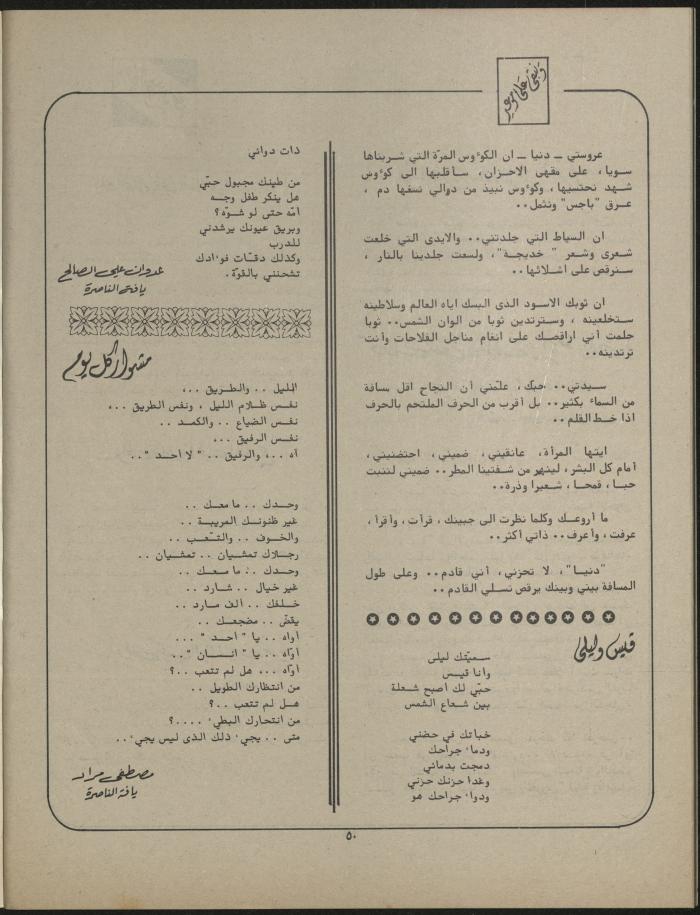 ونبقى على موعد
عروستي – دنيا – ان الكوءوس المرّة التي شربناها
سويا، على مقهى الاحزان، سأقلبها الى كوءوس
شهد نحتسيها، وكوءوس نبيذ من دوالي نسغها دم ،
عرق "باجس" ونثمل..
ان السياط التي جلدتني.. والايدى التي خلعت
شعرى وشعر " خديجة"، ولسعت جلدينا بالنار ،
سنرقص على اشلائها..
ان ثوبك الاسود الذى البسك اياه العالم وسلاطينه
ستخلعينه ، وسترتدين ثوبا من الوان الشمس.. ثوبا
حلمت أني اراقصك على انغام مناجل الفلاحات وأنت
ترتدينه..
سيدتي.. حبك، علمّني أن النجاح اقل بسافة
من السماء بكثير.. بل أقرب من الحرف الملتحم بالحرف
اذا خط القلم..
ايتها المرأة، عانقيني، ضميني، احتضنيني،
أمام كل البشر، لينهر من شفتينا المطر.. ضميني لننبت
حبا، قمحا، شعيرا وذرة..
ما أروعك وكلما نظرت الى جبينك، قرأت، وأقرأ،
عرفت، وأعرف.. ذاتي أكثر..
"دنيا"، لا تحزني، أني قادم.. وعلى طول
المسافة بيني وبينك يرقص نسلي القادم..
قيس وليلى
سميّتك ليلى
وانا قيس
حبّي لك أصبح شعلة
بين شعاع الشمس
خباتك في حضني
ودماء جراحك
دمجت بدمائي
وغدا حزنك حزني
ودواء جراحك هو
ذات دوائي
من طينك مجبول حبّي
هل ينكر طفل وجه
امّه حتى لو شوّه؟
وبريق عيونك يرشدني
للدرب
وكذلك دقّات فوءادك
تشحنني بالقوّة.
عدوان علي الصالح
يافة الناصرة
مشوار كل يوم
الليل .. والطريق ..،
نفس ظلام الليل ، ونفس الطريق ..،
نفس الضياع .. والكمد ..
نفس الرفيق ...
آه ..، والرفيق .. " لا أحد "..
وحدك .. ما معك ..
غير ظنونك المريبة ..
والخوف .. والتّعب ..
رجلاك تمشيان .. تمشيان ..
وحدك .. ما معك ..
غير خيال .. شارد ..
خلفك .. ألف مارد ..
يقضّ .. مضجعك ..
أواه .. يا " احد " ...
أوّاه .. يا " انسان "..
أوّاه ... هل لم تتعب ..؟
من انتظارك الطويل ..
هل لم تتعب ..؟
من انتحارك البطيء ....؟
متى .. يجيء ذلك الذى ليس يجيء..
مصطفى مراد
يافة الناصرة
٥٠